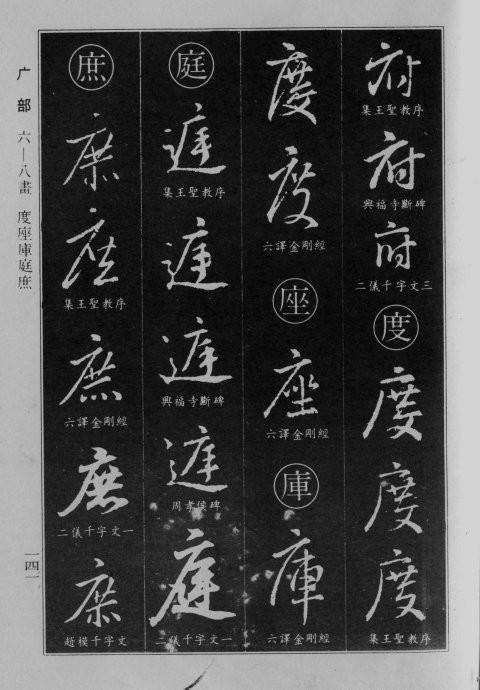 府
集王聖教序
府
興福寺斷碑
府
二儀千字文三
度
度
度
度
集王聖教序
度
度
六譯金剛經
座
座
六譯金剛經
庫
庫
六譯金剛經
庭
庭
集王聖教序
庭
庭
興福寺斷碑
庭
周孝侯碑
庭
二儀千字文一
庶
庶
庶
集王聖教序
庶
六譯金剛經
庶
二儀千字文一
庶
趙模千字文
广部 六—八畫 度座庫庭庶
一四一